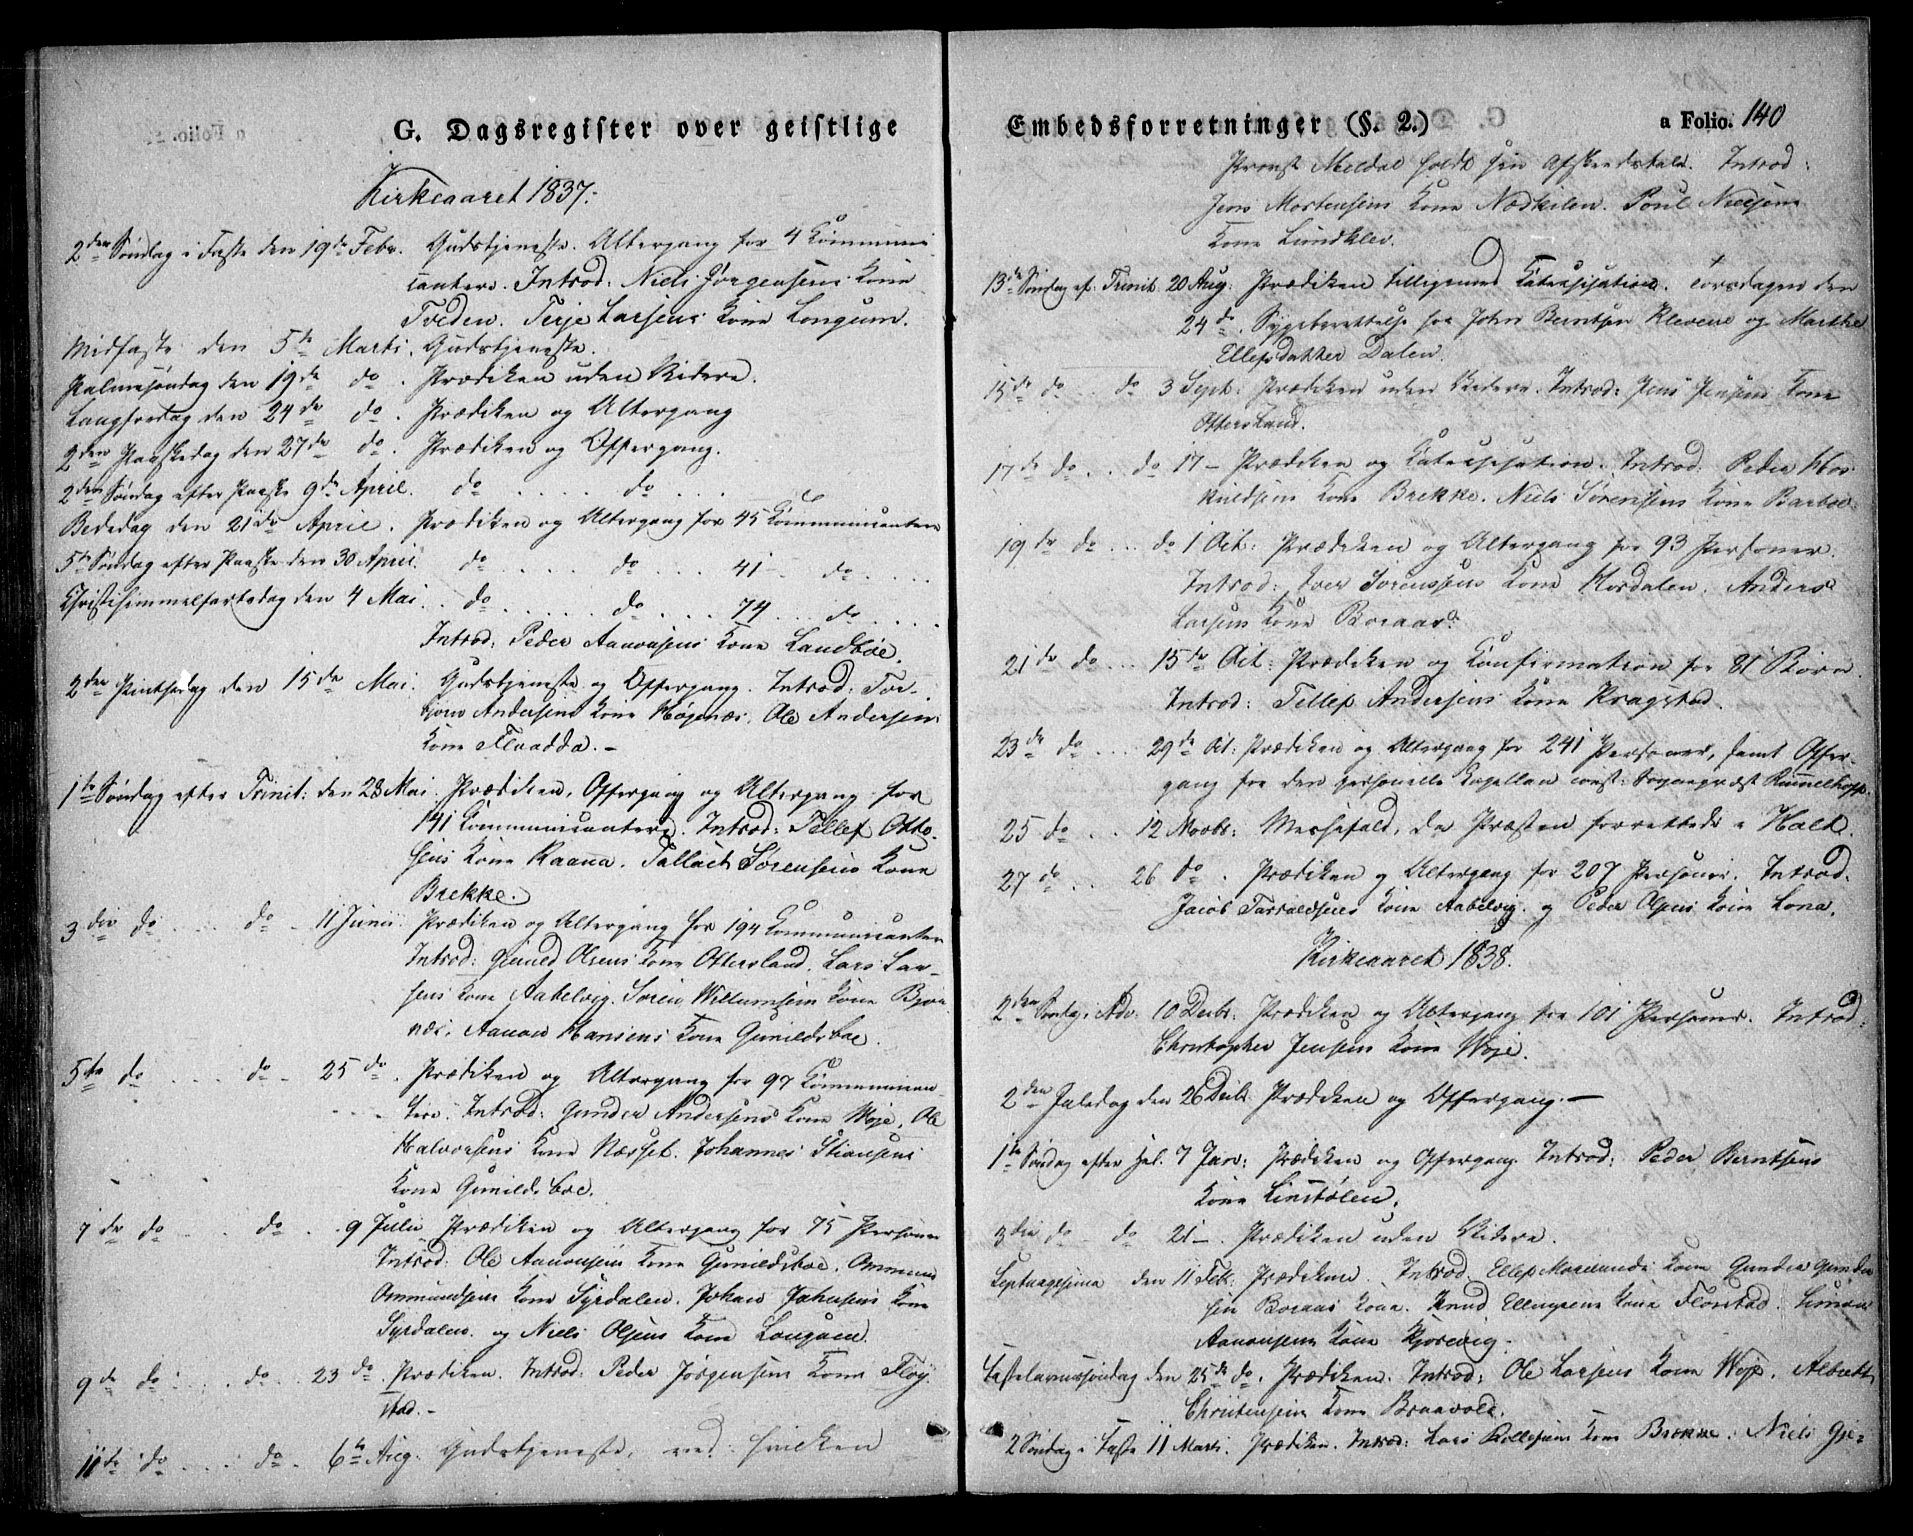 G. Dagsregister over geistlige
Kirkeaaret 1837.
2den Søndag i Faste den 19de Febr. Gudstjeneste. Altergang for 4 Communi-
cantere. Introd: Niels Jørgensens Kone
Tveden. Terje Larsens Kone Longum.
Midfaste den 5te Marts. Gudstjeneste.
Palmesøndag den 19de do. Prædiken uden Videre.
Langfredag den 24de do. Prædiken og Altergang
2den Paaskedag den 27de do. Prædiken og Offergang.
2den Søndag efter Paaske 9de April. do .... do ...
Bededag den 21de April. Prædiken og Altergang for 45 Communicantere
5te Søndag efter Paaske den 30 April. do .... do ... 41 - do ....
Christi himmelfartsdag den 4 Mai. do .... do ... 74 ... do ....
Introd: Peder Aanonsens Kone Landbøe.
2den Pintsedag den 15de Mai. Gudstjeneste og Offergang. Introd: Tor-
bjørn Andersens Kone Høgenæs. Ole Andersens
Kone Flvadda. -
1ste Søndag efter Trinit: den 28 Mai. Prædiken, Offergang og Altergang for
141 Communicantere. Introd: Tellef Otto-
sens Kone Raanna. Tallack Sørensens Kone
Brekke.
3die do .... do - 11 Junii. Prædiken og Altergang for 194 Communicanter
Introd: Gunuld Olsens Kone Ottersland. Lars Lar-
sens Kone Aabelvig. Søren Willumsens Kone Bjor-
næs. Aanon Hansens Kone Gunildsboe.
5te do .... do - 25 do. Prædiken og Altergang for 97 Communican-
tere. Introd: Gunder Andersens Kone Woje. Ole
Halvorsens Kone Næsset. Johannes Stiansens
Kone Gunildsboe.
7de do .... do . 9 Julii Prædiken og Altergang for 75 Personer
Introd: Ole Aanonsens Kone Gunildsboe. Ommund
Ommundsens Kone Syrdalen. Johan Johnsens Kone
Syrdalen. og Niels Olsens Kone Longum.
9de do .... do .. 23 do. Prædiken. Introd: Peder Jørgensens Kone Fløy-
stad. -
11te do .... do . 6te Aug. Gudstjeneste, ved hvilken
Embedsforretninger (§. 2.)
a Folio. 140
Provst Meldal holdt sin Afskedstale. Introd:
Jens Mortensens Kone Nødkilen. Poul Nielsens
Kone Lundklev.
13de Søndag ef: Trinit. 20 Aug: Prædiken tilligemed Catechisation. Torsdagen den
24de. Sygeberettelse for John Berntsen Klevene og Marthe
Ellefsdatter Dalen.
15de do . do 3 Sept: Prædiken uden Videre. Introd: Jens Jensens Kone
Ottersland.
17de do .. do 17 - Prædiken og Catechisation. Introd: Peder Hos-
kuldsens Kone Brekke. Niels Sørensens Kone Barboe.
19de do ... do 1 Oct: Prædiken og Altergang for 93 Personer.
Introd: Iver Sørenssens Kone Mørdalen. Anders
Larsens Kone Boraas.
21de do ... 15de Oct: Prædiken og Confirmation for 81 Børn.
Introd: Tellef Andersens Kone Kragstad.
23de do .... 29de Oct: Prædiken og Altergang for 241 Personer, samt Offer-
gang for den personelle Capellan const: Sognepræst Rummelhoff.
25 do ... 12 Novbr: Messefald, da Præsten forrettede i Holt.
27 do ... 26 do. Prædiken og Altergang for 207 Personer. Introd.
Jacob Tarraldsens Kone Aabelvig. og Peder Olsens Kone Lona.
Kirkeaaret 1838.
2den Søndag i Adv: 10 Decbr: Prædiken og Altergang for 101 Personer. Introd:
Christopher Jensens Kone Woje.
2den Juledag den 26 Decbr. Prædiken og Offergang. -
1ste Søndag efter Hel. 7 Jan: Prædiken og Offergang. Introd: Peder Berntsens
Kone Linstølen.
3die do - do 21 -. Prædiken uden Videre.
Septuagesima den 11 Feb: Prædiken. Introd: Ellef Moeelands Kone Gunder Gunder-
sens Boraas Kone. Knud Ellingsens Kone Flørstad. Simon
Aanonsens Kone Kjørevig.
Fastelavnssøndag den 25de do. Prædiken. Introd: Ole Larsens Kone Woje. Albreth
Christensens Kone Braavold.
2 Søndag i Faste 11 Marts. Prædiken. Introd: Lars Rollefsens Kone Brekke. Niels Gje-